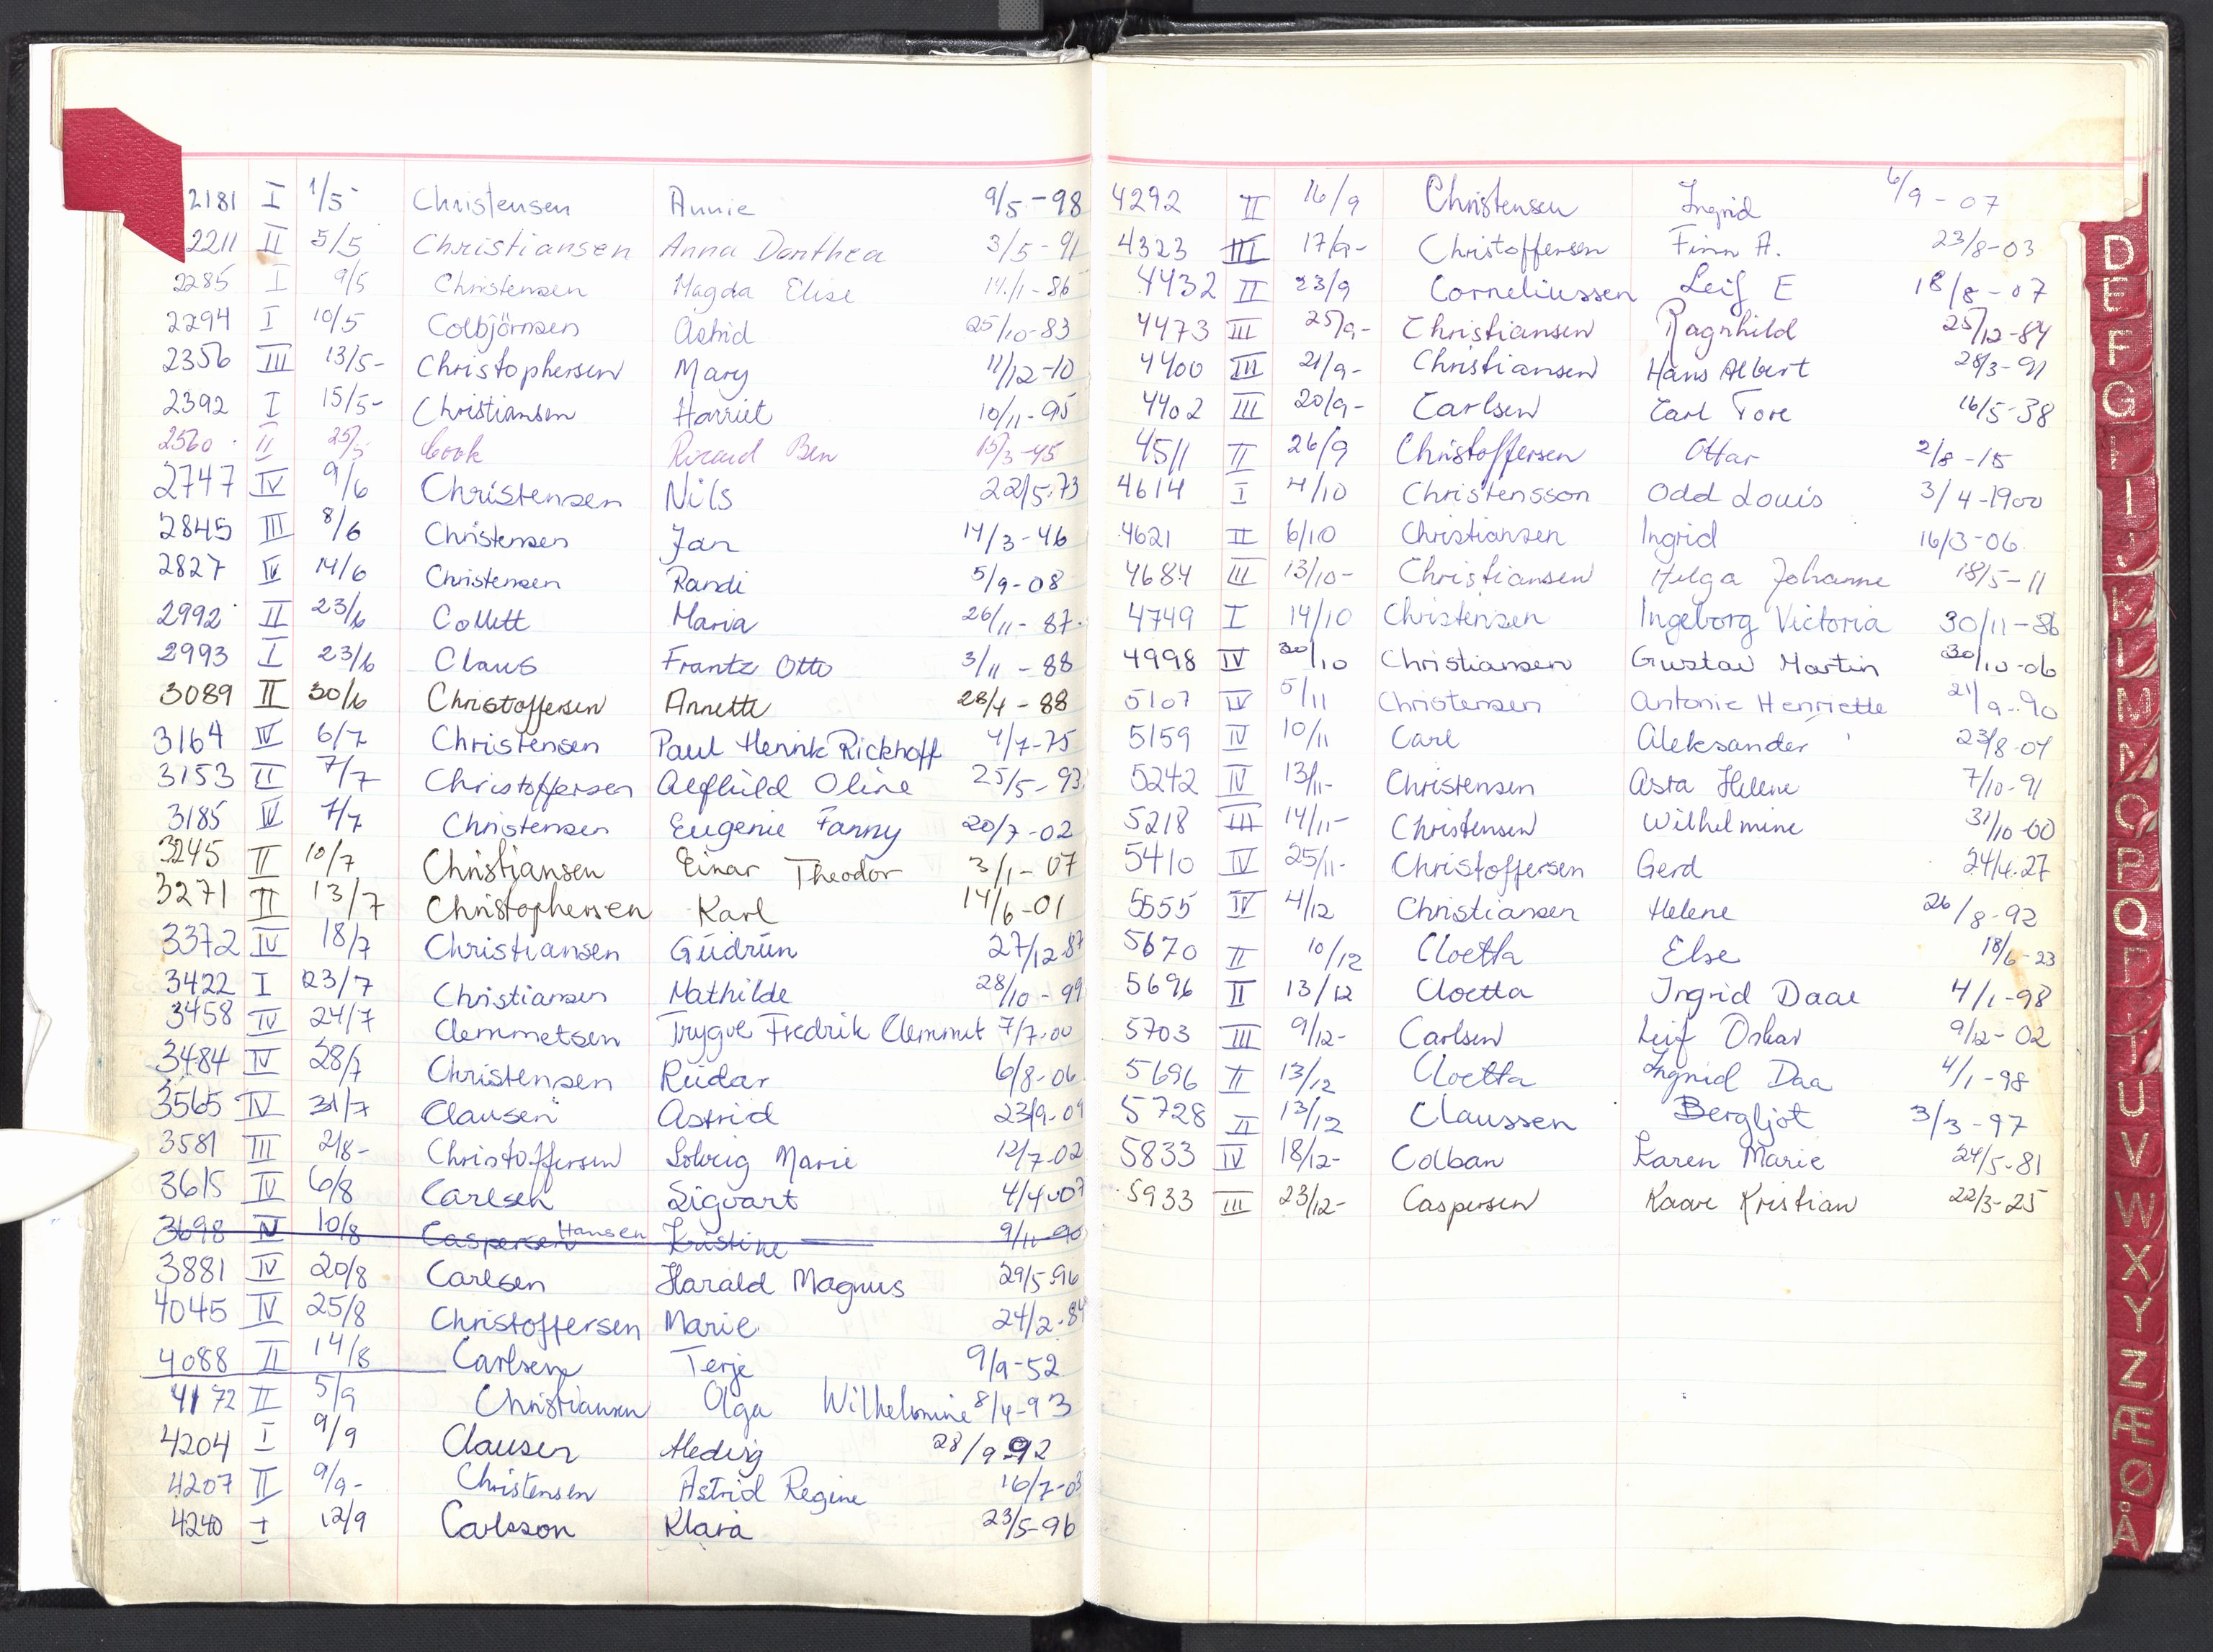 2181 I 1/5- Christensen Annie 9/5-98
2211 II 5/5 Christiansen Anna Dorthea 3/5-91
2285 I 9/5 Christensen Magda Elise 14/1-86
2294 I 10/5 Colbjörnsen Astrid 25/10-83
2356 III 13/5- Christophersen Mary 11/12-10
2392 I 15/5- Christiansen Harriet 10/11-95
2560 II 25/5 Cook Ricard Ben 15/3-45
2747 IV 9/6 Christensen Nils 22/5.73
2845 III 8/6 Christensen Jan 14/3-46
2827 IV 14/6 Christensen Randi 5/9-08
2992 II 23/6 Collett Maria 26/11-87.
2993 I 23/6 Claus Frantz Otto 3/11-88
3089 II 30/6 Christoffersen Annette 28/4-88
3164 IV 6/7 Christensen Paul Henrik Rickhoff 4/7-75
3153 II 7/7 Christoffersen Alfhild Oline 25/5-93
3185 IV 7/7 Christensen Eugenie Fanny 20/7-02
3245 II 10/7 Christiansen Einar Theodor 3/1-07
3271 II 13/7 Christophersen Karl 14/6-01
3372 IV 18/7 Christiansen Gudrun 27/12.87
3422 I 23/7 Christiansen Mathilde 28/10-99
3458 IV 24/7 Clemmetsen Trygve Fredrik Clemmet 7/7-00
3484 IV 28/7 Christensen Reidar 6/8-06
3565 IV 31/7 Clausen Astrid 23/9-09
3581 III 2/8- Christoffersen Solveig Marie 12/7-02
3615 IV 6/8 Carlsen Sigvart 4/4-07
3698 IV 10/8 Caspersen Hansen Kristine 9/11-90
3881 IV 20/8 Carlsen Harald Magnus 29/5.96
4045 IV 25/8 Christoffersen Marie 24/2-84
4088 II 14/8 Carlsen Terje 9/9-52
4172 II 5/9 Christiansen Olga Wilhelmine 8/4-93
4204 I 9/9 Clausen Hedvig 28/9 92
4207 II 9/9- Christensen Astrid Regine 16/7-03
4240 I 12/9 Carlsson Klara 23/5-96
4292 II 16/9 Christensen Ingrid 6/9-07
4323 III 17/9- Christoffersen Finn A. 23/8-03
4432 II 23/9 Corneliussen Leif E 18/8-07
4473 III 25/9- Christiansen Ragnhild 25/12-84
4400 III 21/9- Christiansen Hans Albert 28/3-91
4402 III 20/9- Carlsen Carl Tore 16/5-38
4511 II 26/9 Christoffersen Ottar 2/8-15
4614 I 4/10 Christensson Odd Louis 3/4-1900
4621 II 6/10 Christiansen Ingrid 16/3-06
4684 III 13/10- Christiansen Helga Johanne 18/5-11
4749 I 14/10 Christensen Ingeborg Victoria 30/11-86
4998 IV 30/10 Christiansen Gustav Martin 30/10-06
5107 IV 5/11 Christensen Antonie Henriette 21/9-90
5159 IV 10/11 Carl Aleksander 23/8-04
5242 IV 13/11- Christensen Asta Helene 7/10-91
5218 III 14/11- Christensen Wilhelmine 31/10-60
5410 IV 25/11- Christoffersen Gerd 24/4.27
5555 IV 4/12 Christiansen Helene 26/8-92
5670 II 10/12 Cloetta Else 18/6-23
5696 II 13/12 Cloetta Ingrid Daae 4/1-98
5703 III 9/12- Carlsen Leif Oskar 9/12-02
5696 II 13/12 Cloetta Ingrid Daa 4/1-98
5728 II 13/12 Claussen Bergljot 3/3-97
5833 IV 18/12- Colban Karen Marie 24/5-81
5933 III 23/12- Caspersen Kaare Kristian 22/3-25
D
E
F
G
I
J
K
L
M
N
O
P
Q
T
U
V
W
X
Y
Z
Æ
Ø
Å